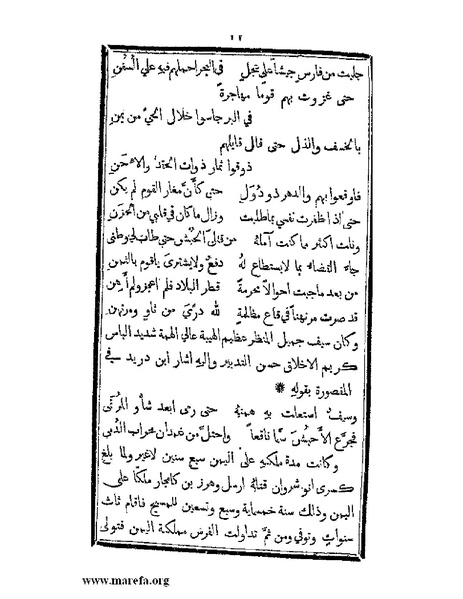 ٢٢
جلبت من فارس جيشا على عجل في البحر احملهم فيه على السفن
حتى غزوت بهم قوما مهاجرة
في البر جاسوا خلال الحي من يمن
بالخسف والذل حتى قال قايلهم
ذوقوا ثمار ذوات الحقد والاحن
فاوقعوا بهم والدهر ذو دول حتى كأن مغار القوم لم يكن
حتى اذا ظفرت نفسي بما طلبت وزال ما كان في قلبي من الحزن
ونلت اكثر ما كنت آمله من قتلي الحبش حتى طاب لي وطني
جاء القضاء بما لا يستطاع له دفع ولا يشترى ياقوم بالثمن
من بعد ما جبت احوالا مجرمة قطر البلاد فلم اعجز ولم أهن
قد صرت مرتهنا في قاع مظلمة لله دري من ثاو ومرتهن
وكان سيف جميل المنظر عظيم الهيبة عالي الهمة شديد الباس
كريم الاخلاق حسن التدبير واليه اشار ابن دريد في
المقصورة بقوله *
وسيف استعلت به همته حتى رمى ابعد شأو المرتمى
فجرع الأحبوش سما ناقعا واحتل من غمدان محراب الدمى
وكانت مدة ملكه على اليمن سبع سنين لاغير ولما بلغ
كسرى انوشروان قتله ارسل وهرز بن كامجار ملكا على
اليمن وذلك سنة خمسماية وسبع وتسعين للمسيح فاقام ثلث
سنوات وتوفي ومن ثم تداولت الفرس مملكة اليمن فتولى
www.marefa.org